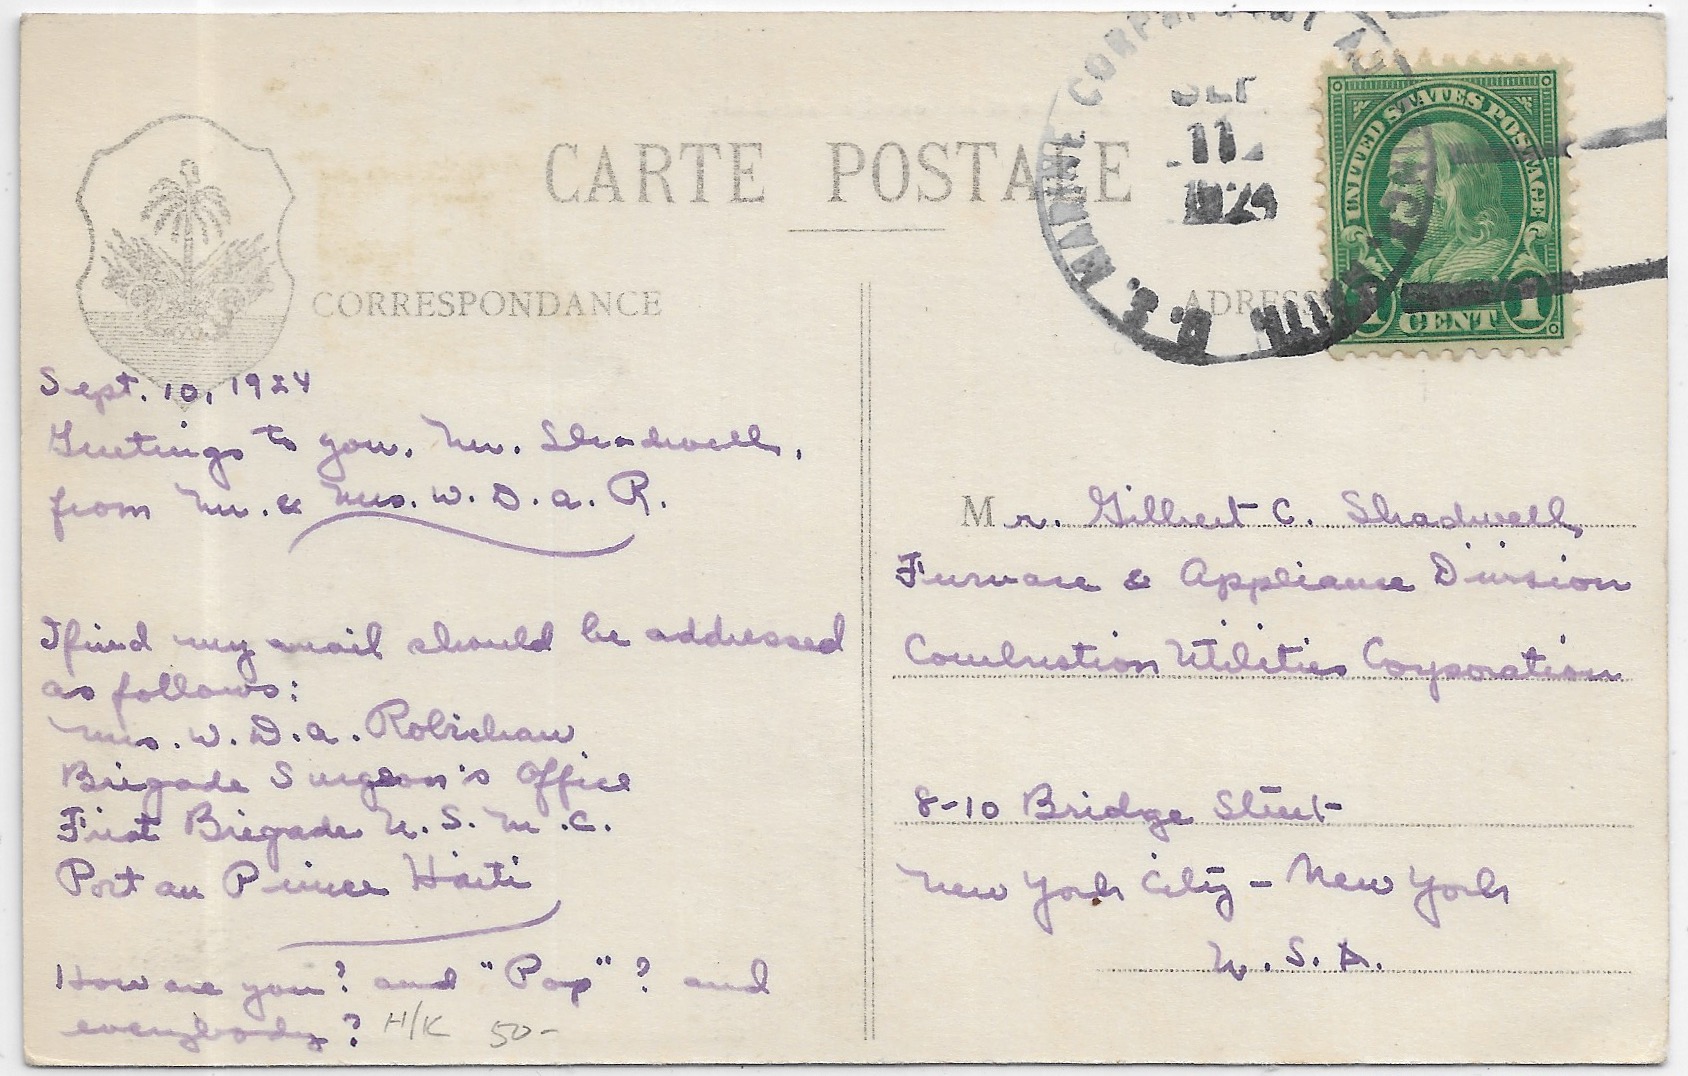 CARTE POSTALE
CORRESPONDANCE
Sept. 10, 1924
Greetings to you, Mr. Shadwell,
from Mr. & Mrs. W. D. A. R.
I find my mail should be addressed
as follows:
Mrs. W. D. A. Robichau
Brigade Surgeon's Office
First Brigade U. S. M. C.
Port au Prince Haiti
How are you? and "Pop"? and
everybody?
H/K 50-
U. S. MARINE CORPS
SEP
11
1924
UNITED STATES POSTAGE
1 CENT 1
ADRESSE
Mr. Gilbert C. Shadwell,
Furnace & Appliance Division
Combustion Utilities Corporation
8-10 Bridge Street
New York City - New York
U. S. A.